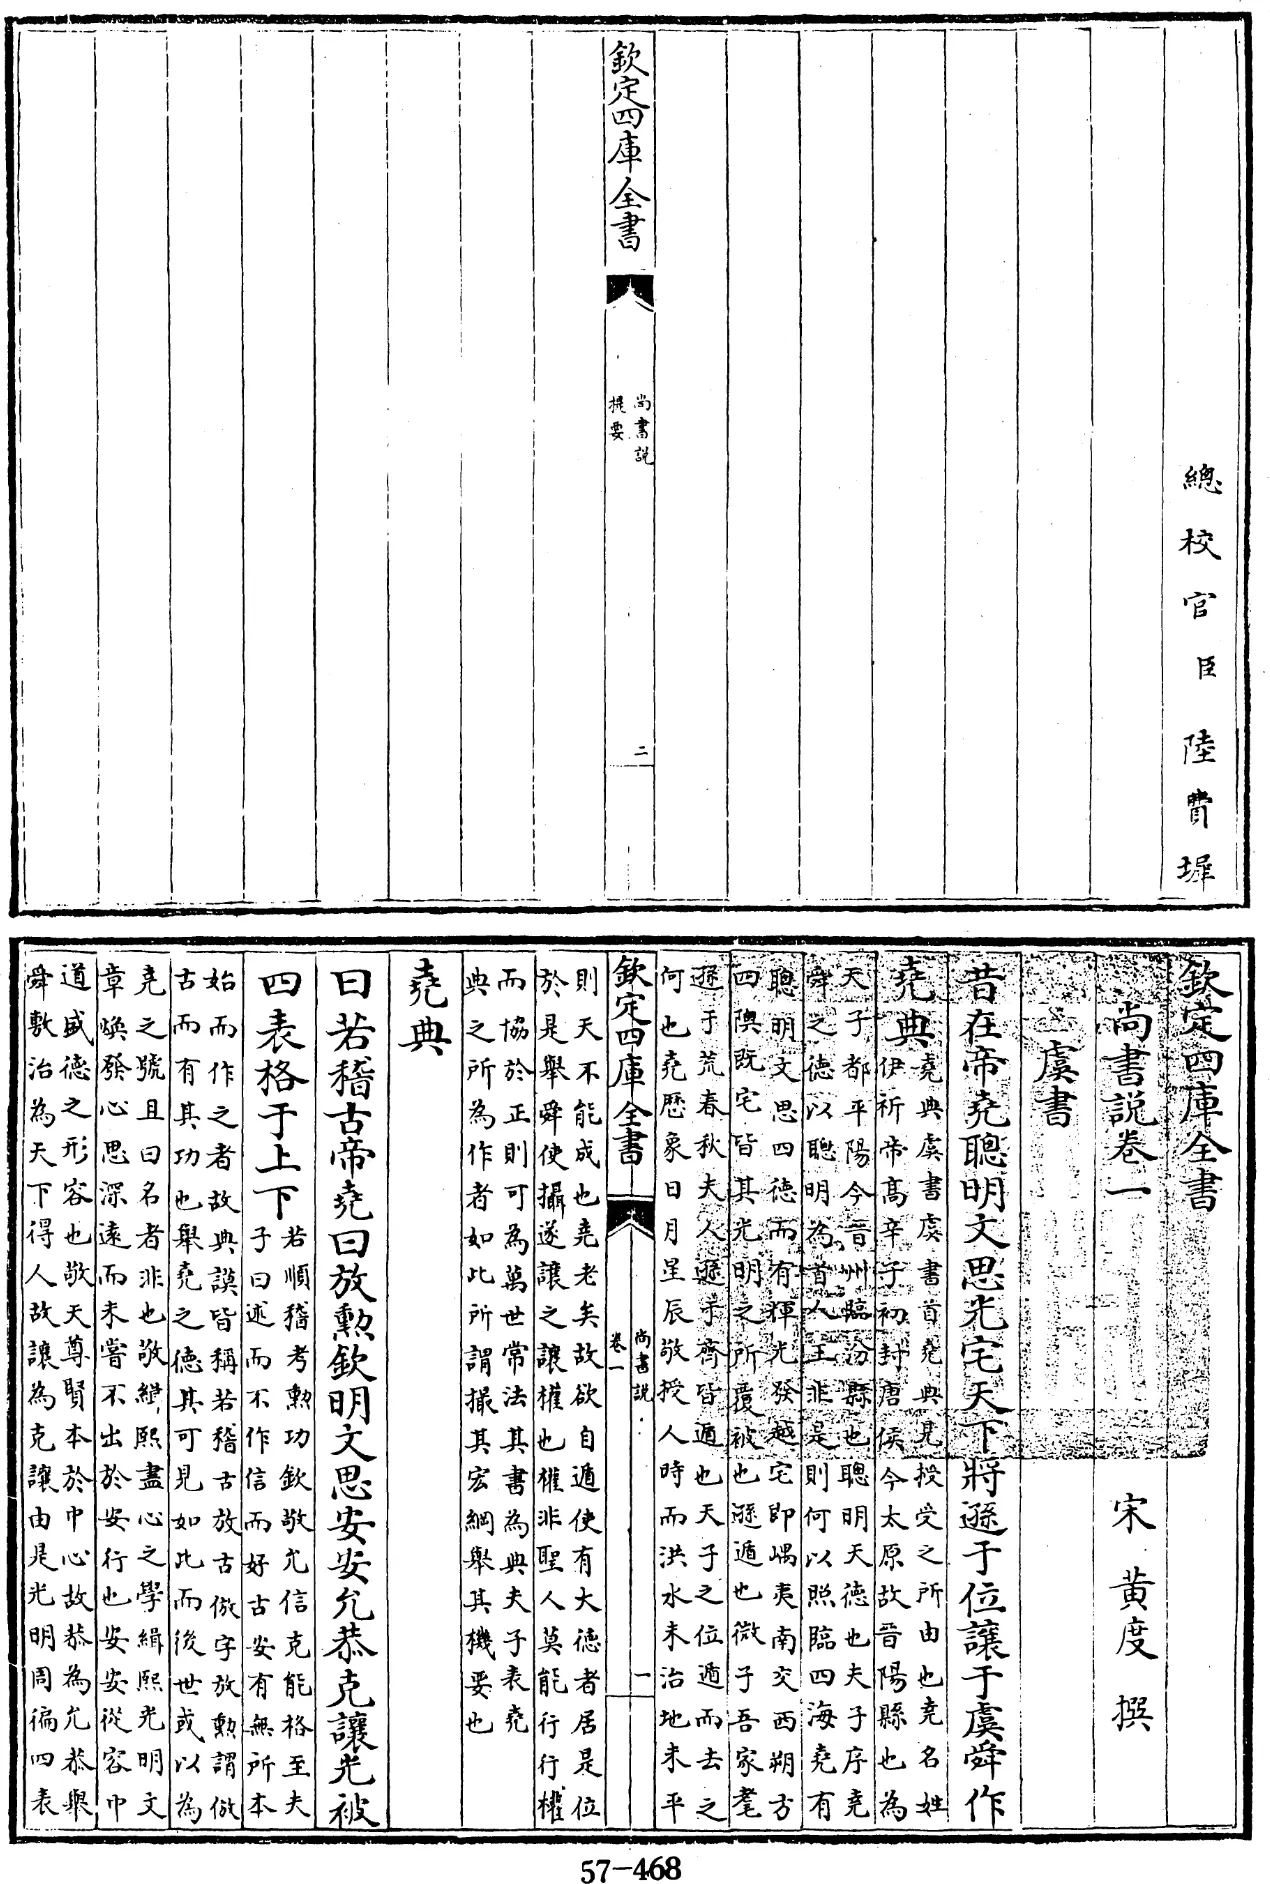 總校官臣陸費墀
欽定四庫全書
尚書說
提要
二
欽定四庫全書
尚書說卷一 宋 黃度 撰
虞書
昔在帝堯聰明文思光宅天下將遜于位讓于虞舜作
堯典
堯典虞書虞書首堯典見授受之所由也堯名姓
伊祈帝高辛子初封唐侯今太原故晉陽縣也為
天子都平陽今晉州臨汾縣也聰明天德也夫子序堯
舜之德以聰明為首人主非是則何以照臨四海堯有
聰明文思四德而有輝光發越宅即嵎夷南交西朔方
四隩既宅皆其光明之所覆被也遜遁也微子吾家耄
遜于荒春秋夫人遜于齊皆遁也天子之位遁而去之
何也堯歷象日月星辰敬授人時而洪水未治地未平
欽定四庫全書
尚書說
卷一
一
則天不能成也堯老矣故欲自遁使有大德者居是位
於是舉舜使攝遂讓之讓權也權非聖人莫能行行權
而協於正則可為萬世常法其書為典夫子表堯
典之所為作者如此所謂撮其宏綱舉其機要也
堯典
曰若稽古帝堯曰放勲欽明文思安安允恭克讓光被
四表格于上下
若順稽考勲功欽敬允信克能格至夫
子曰述而不作信而好古安有無所本
始而作之者故典謨皆稱若稽古放古倣字放勲謂倣
古而有其功也舉堯之德其可見如此而後世或以為
堯之號且曰名者非也敬緝熙盡心之學緝熙光明文
章煥發心思深遠而未嘗不出於安行也安安從容中
道盛德之形容也敬天尊賢本於中心故恭為允恭舉
舜敷治為天下得人故讓為克讓由是光明周徧四表
57-468